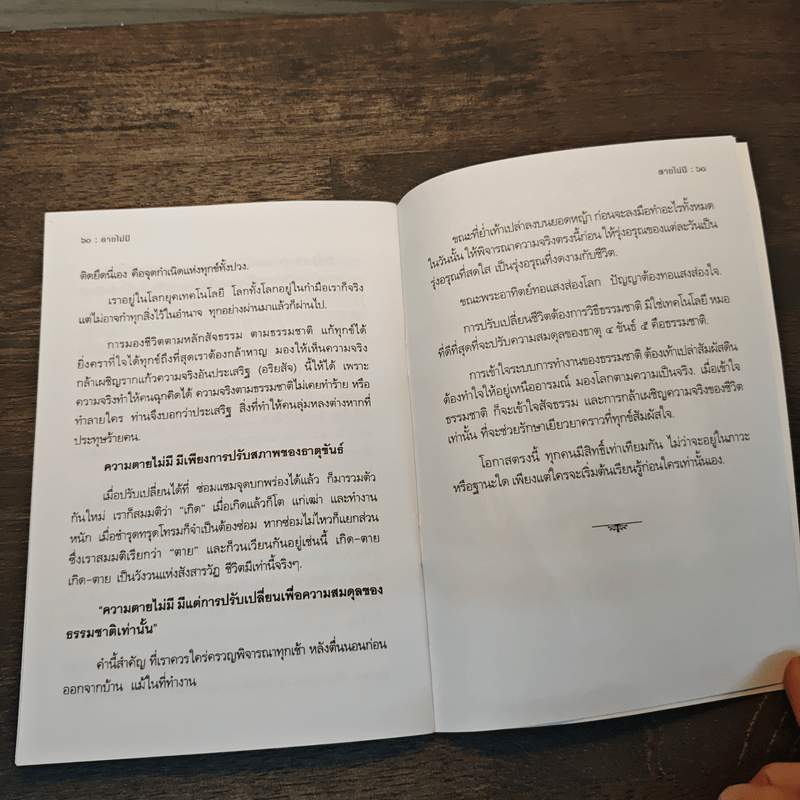 ๖๐ : ตายไม่มี
ติดยึดนี่เอง คือจุดกำเนิดแห่งทุกข์ทั้งปวง.
เราอยู่ในโลกยุคเทคโนโลยี โลกทั้งโลกอยู่ในกำมือเราก็จริง
แต่ไม่อาจกำทุกสิ่งไว้ในอำนาจ ทุกอย่างผ่านมาแล้วก็ผ่านไป.
การมองชีวิตตามหลักสัจธรรม ตามธรรมชาติ แก้ทุกข์ได้
ยิ่งคราที่ใจได้ทุกข์ถึงที่สุดเราต้องกล้าหาญ มองให้เห็นความจริง
กล้าเผชิญรากแก้วความจริงอันประเสริฐ (อริยสัจ) นี้ให้ได้ เพราะ
ความจริงทำให้คนฉุกคิดได้ ความจริงตามธรรมชาติไม่เคยทำร้าย หรือ
ทำลายใคร ท่านจึงบอกว่าประเสริฐ สิ่งที่ทำให้คนลุ่มหลงต่างหากที่
ประทุษร้ายคน.
ความตายไม่มี มีเพียงการปรับสภาพของธาตุขันธ์
เมื่อปรับเปลี่ยนได้ที่ ซ่อมแซมจุดบกพร่องได้แล้ว ก็มารวมตัว
กันใหม่ เราก็สมมติว่า "เกิด" เมื่อเกิดแล้วก็โต แก่เฒ่า และทำงาน
หนัก เมื่อชำรุดทรุดโทรมก็จำเป็นต้องซ่อม หากซ่อมไม่ไหวก็แยกส่วน
ซึ่งเราสมมติเรียกว่า "ตาย" และก็วนเวียนกันอยู่เช่นนี้ เกิด-ตาย
เกิด-ตาย เป็นวังวนแห่งสังสารวัฏ ชีวิตมีเท่านี้จริงๆ.
"ความตายไม่มี มีแต่การปรับเปลี่ยนเพื่อความสมดุลของ
ธรรมชาติเท่านั้น"
คำนี้สำคัญ ที่เราควรใคร่ครวญพิจารณาทุกเช้า หลังตื่นนอนก่อน
ออกจากบ้าน แม้ในที่ทำงาน
ตายไม่มี : ๖๐
ขณะที่ย่ำเท้าเปล่าลงบนยอดหญ้า ก่อนจะลงมือทำอะไรทั้งหมด
ในวันนั้น ให้พิจารณาความจริงตรงนี้ก่อน ให้รุ่งอรุณของแต่ละวันเป็น
รุ่งอรุณที่สดใส เป็นรุ่งอรุณที่งดงามกับชีวิต.
ขณะพระอาทิตย์ทอแสงส่องโลก ปัญญาต้องทอแสงส่องใจ.
การปรับเปลี่ยนชีวิตต้องการวิธีธรรมชาติ มิใช่เทคโนโลยี หมอ
ที่ดีที่สุดที่จะปรับความสมดุลของธาตุ ๔ ขันธ์ ๕ คือธรรมชาติ.
การเข้าใจระบบการทำงานของธรรมชาติ ต้องเท้าเปล่าสัมผัสดิน
ต้องทำใจให้อยู่เหนืออารมณ์ มองโลกตามความเป็นจริง. เมื่อเข้าใจ
ธรรมชาติ ก็จะเข้าใจสัจธรรม และการกล้าเผชิญความจริงของชีวิต
เท่านั้น ที่จะช่วยรักษาเยียวยาคราวที่ทุกข์สัมผัสใจ.
โอกาสตรงนี้ ทุกคนมีสิทธิ์เท่าเทียมกัน ไม่ว่าจะอยู่ในภาวะ
หรือฐานะใด เพียงแต่ใครจะเริ่มต้นเรียนรู้ก่อนใครเท่านั้นเอง.